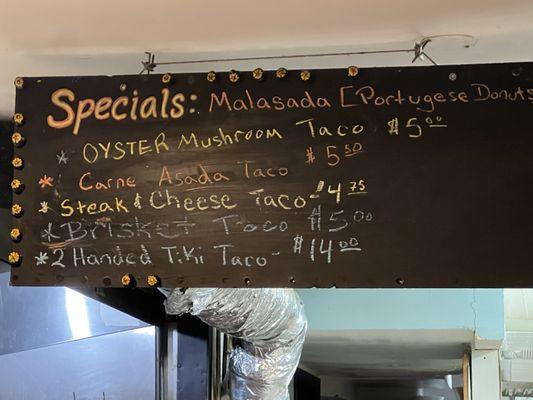 Specials: Malasada [Portugese Donuts
* OYSTER Mushroom Taco $5.00
* Carne Asada Taco $5.50
* Steak & Cheese Taco $4.75
* Brisket Taco $5.00
* 2 Handed Tiki Taco - $14.00